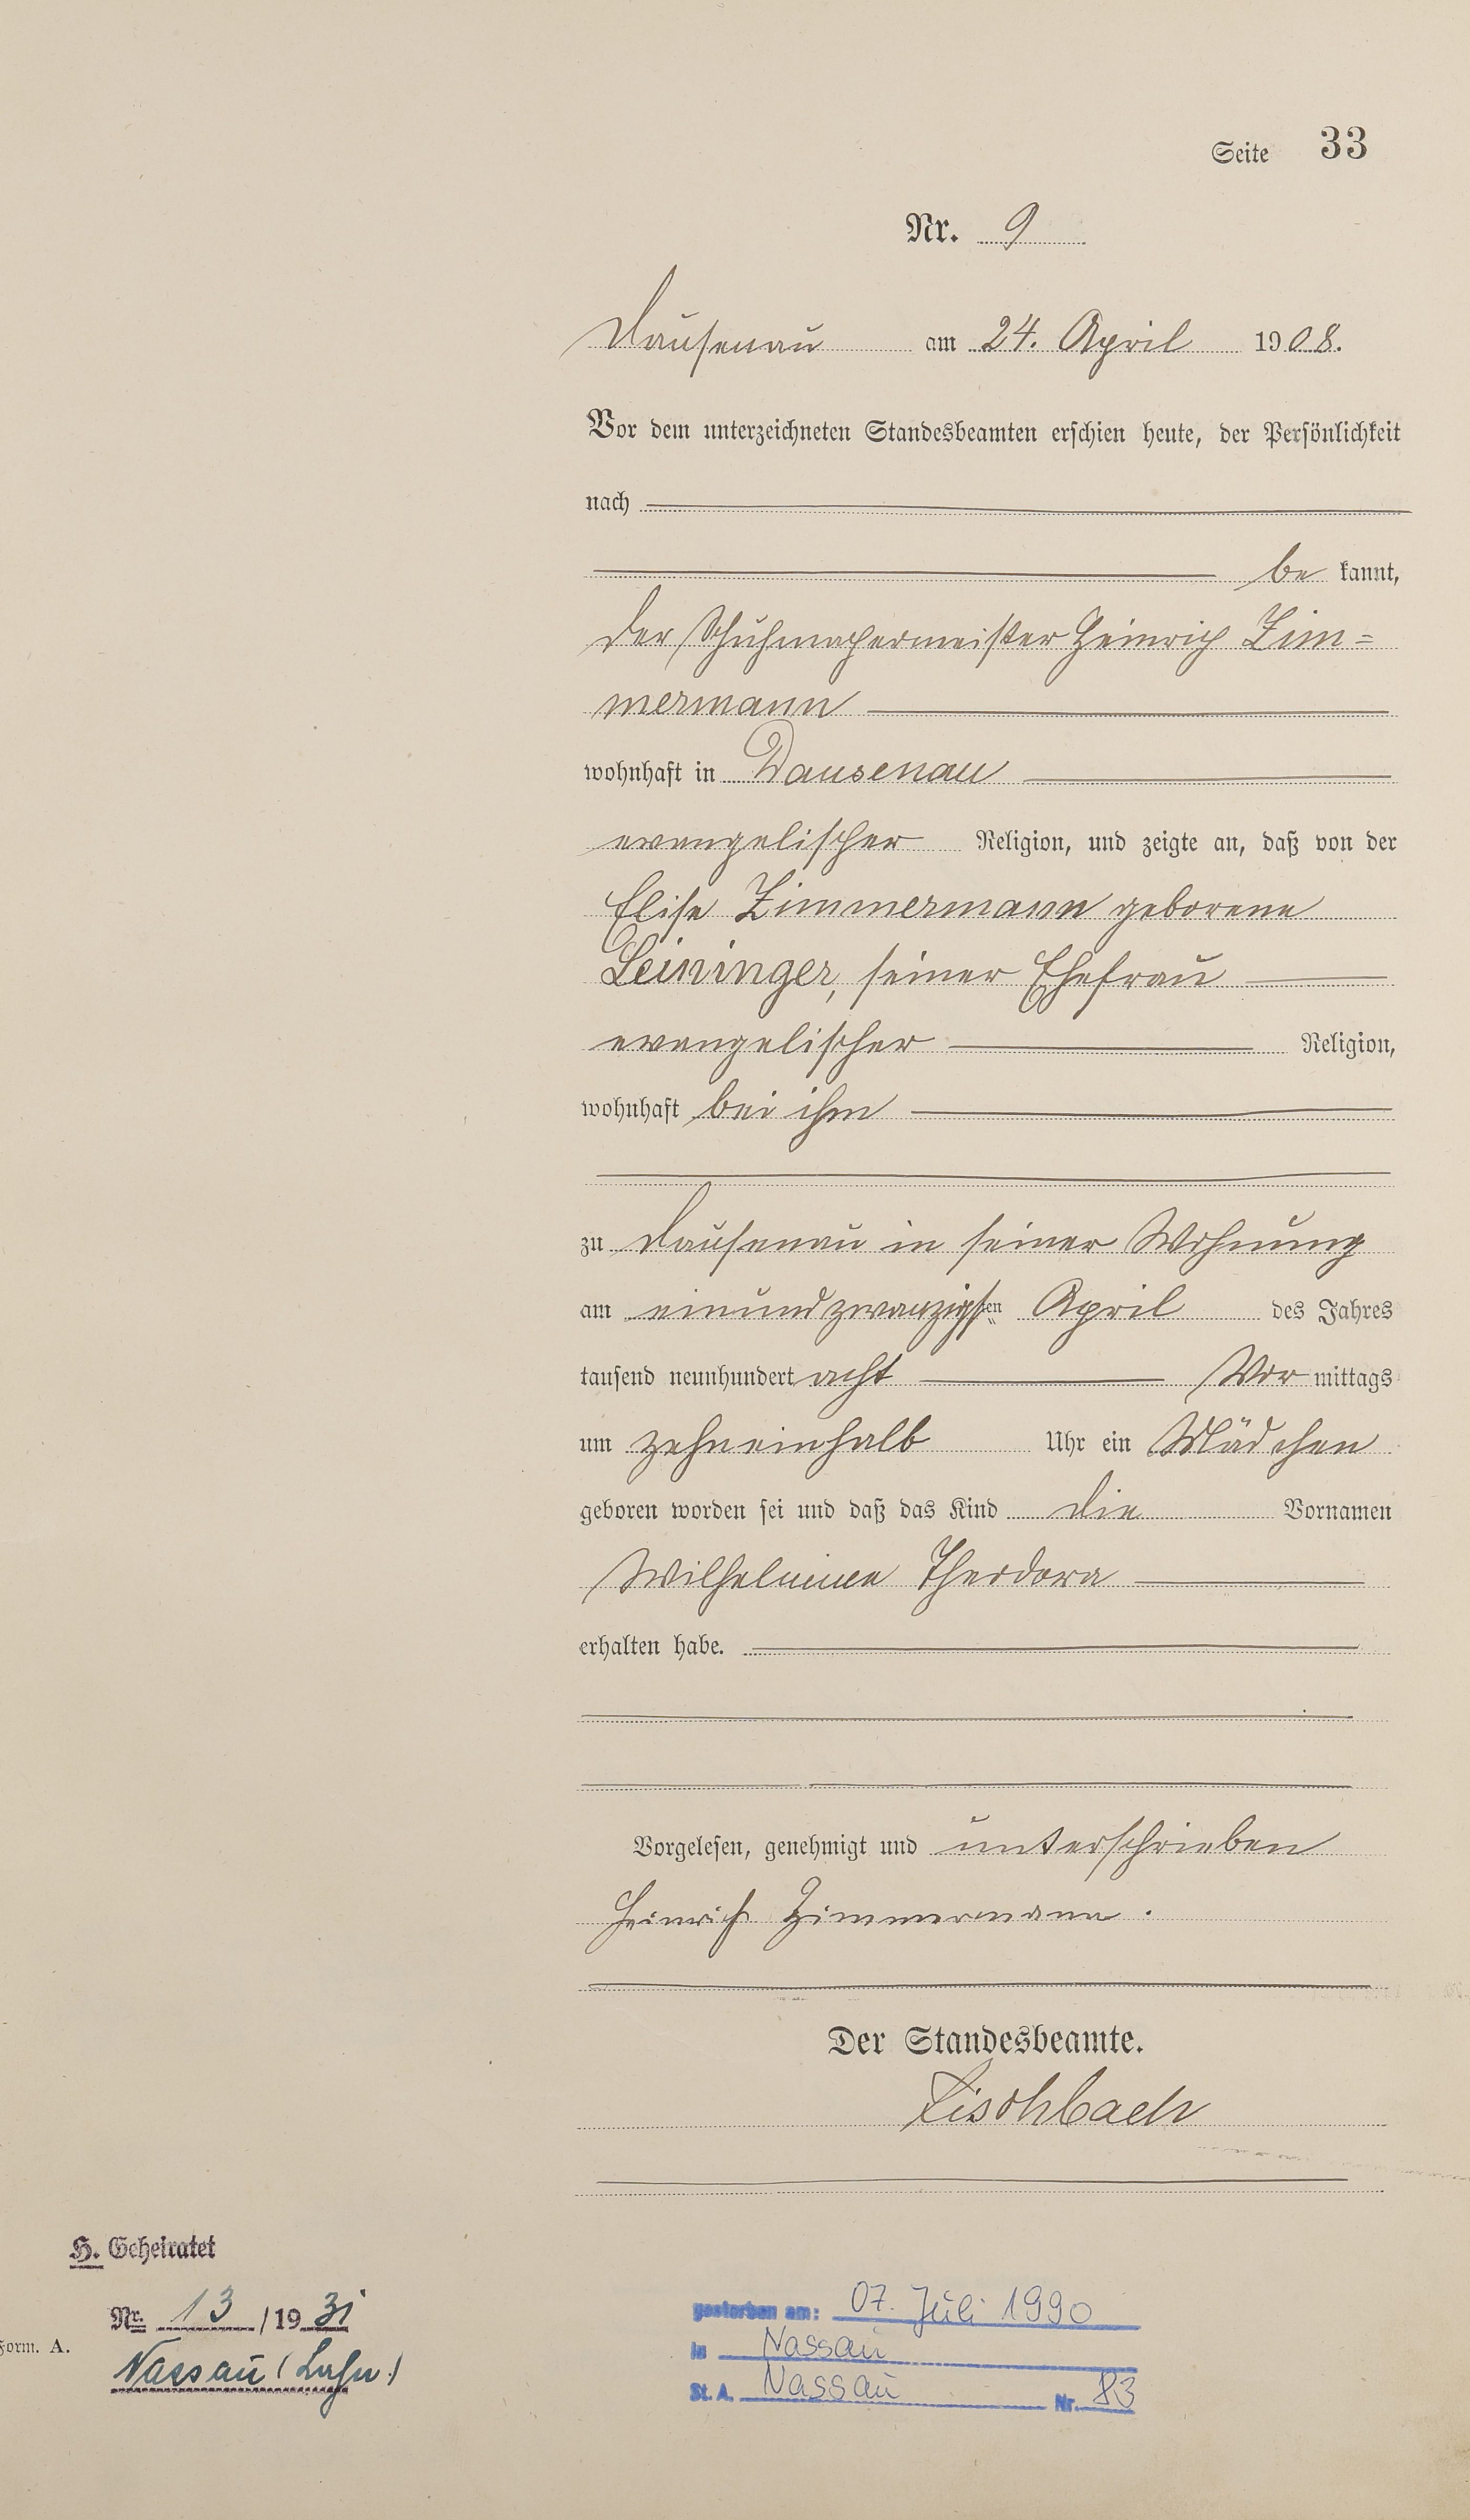 Seite 33
Nr. 9
Dausenau am 24. April 1908.
Vor dem unterzeichneten Standesbeamten erschien heute, der Persönlichkeit
nach
be kannt,
der Schuhmachermeister Heinrich Zim=
mermann
wohnhaft in Dausenau
evangelischer Religion, und zeigte an, daß von der
Elise Zimmermann geborene
Leininger, seiner Ehefrau
evangelischer Religion,
wohnhaft bei ihm
zu Dausenau in seiner Wohnung
am einundzwanzigsten April des Jahres
tausend neunhundert acht Vor mittags
um zehneinhalb Uhr ein Mädchen
geboren worden sei und daß das Kind die Vornamen
Wilhelmine Theodora
erhalten habe.
Vorgelesen, genehmigt und unterschrieben
Heinrich Zimmermann.
Der Standesbeamte.
Fischbach
H. Geheiratet
Nr. 13 /19 31
Nassau (Lahn)
Form. A.
gestorben am: 07. Juli 1990
in Nassau
St. A. Nassau Nr. 83